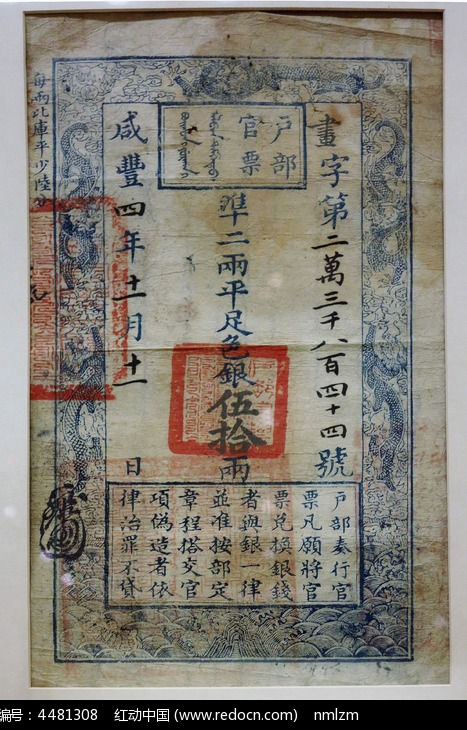 戶部
官票
畫字第二萬三千八百四十四號
準二兩平足色銀伍拾兩
咸豐四年十一月十一日
每兩比庫平少陸分
戶部奏行官
票凡願將官
票兌換銀錢
者與銀一律
並准按部定
章程搭交官
項偽造者依
律治罪不貸
编号：4481308 红动中国 (www.redocn.com) nmlzm